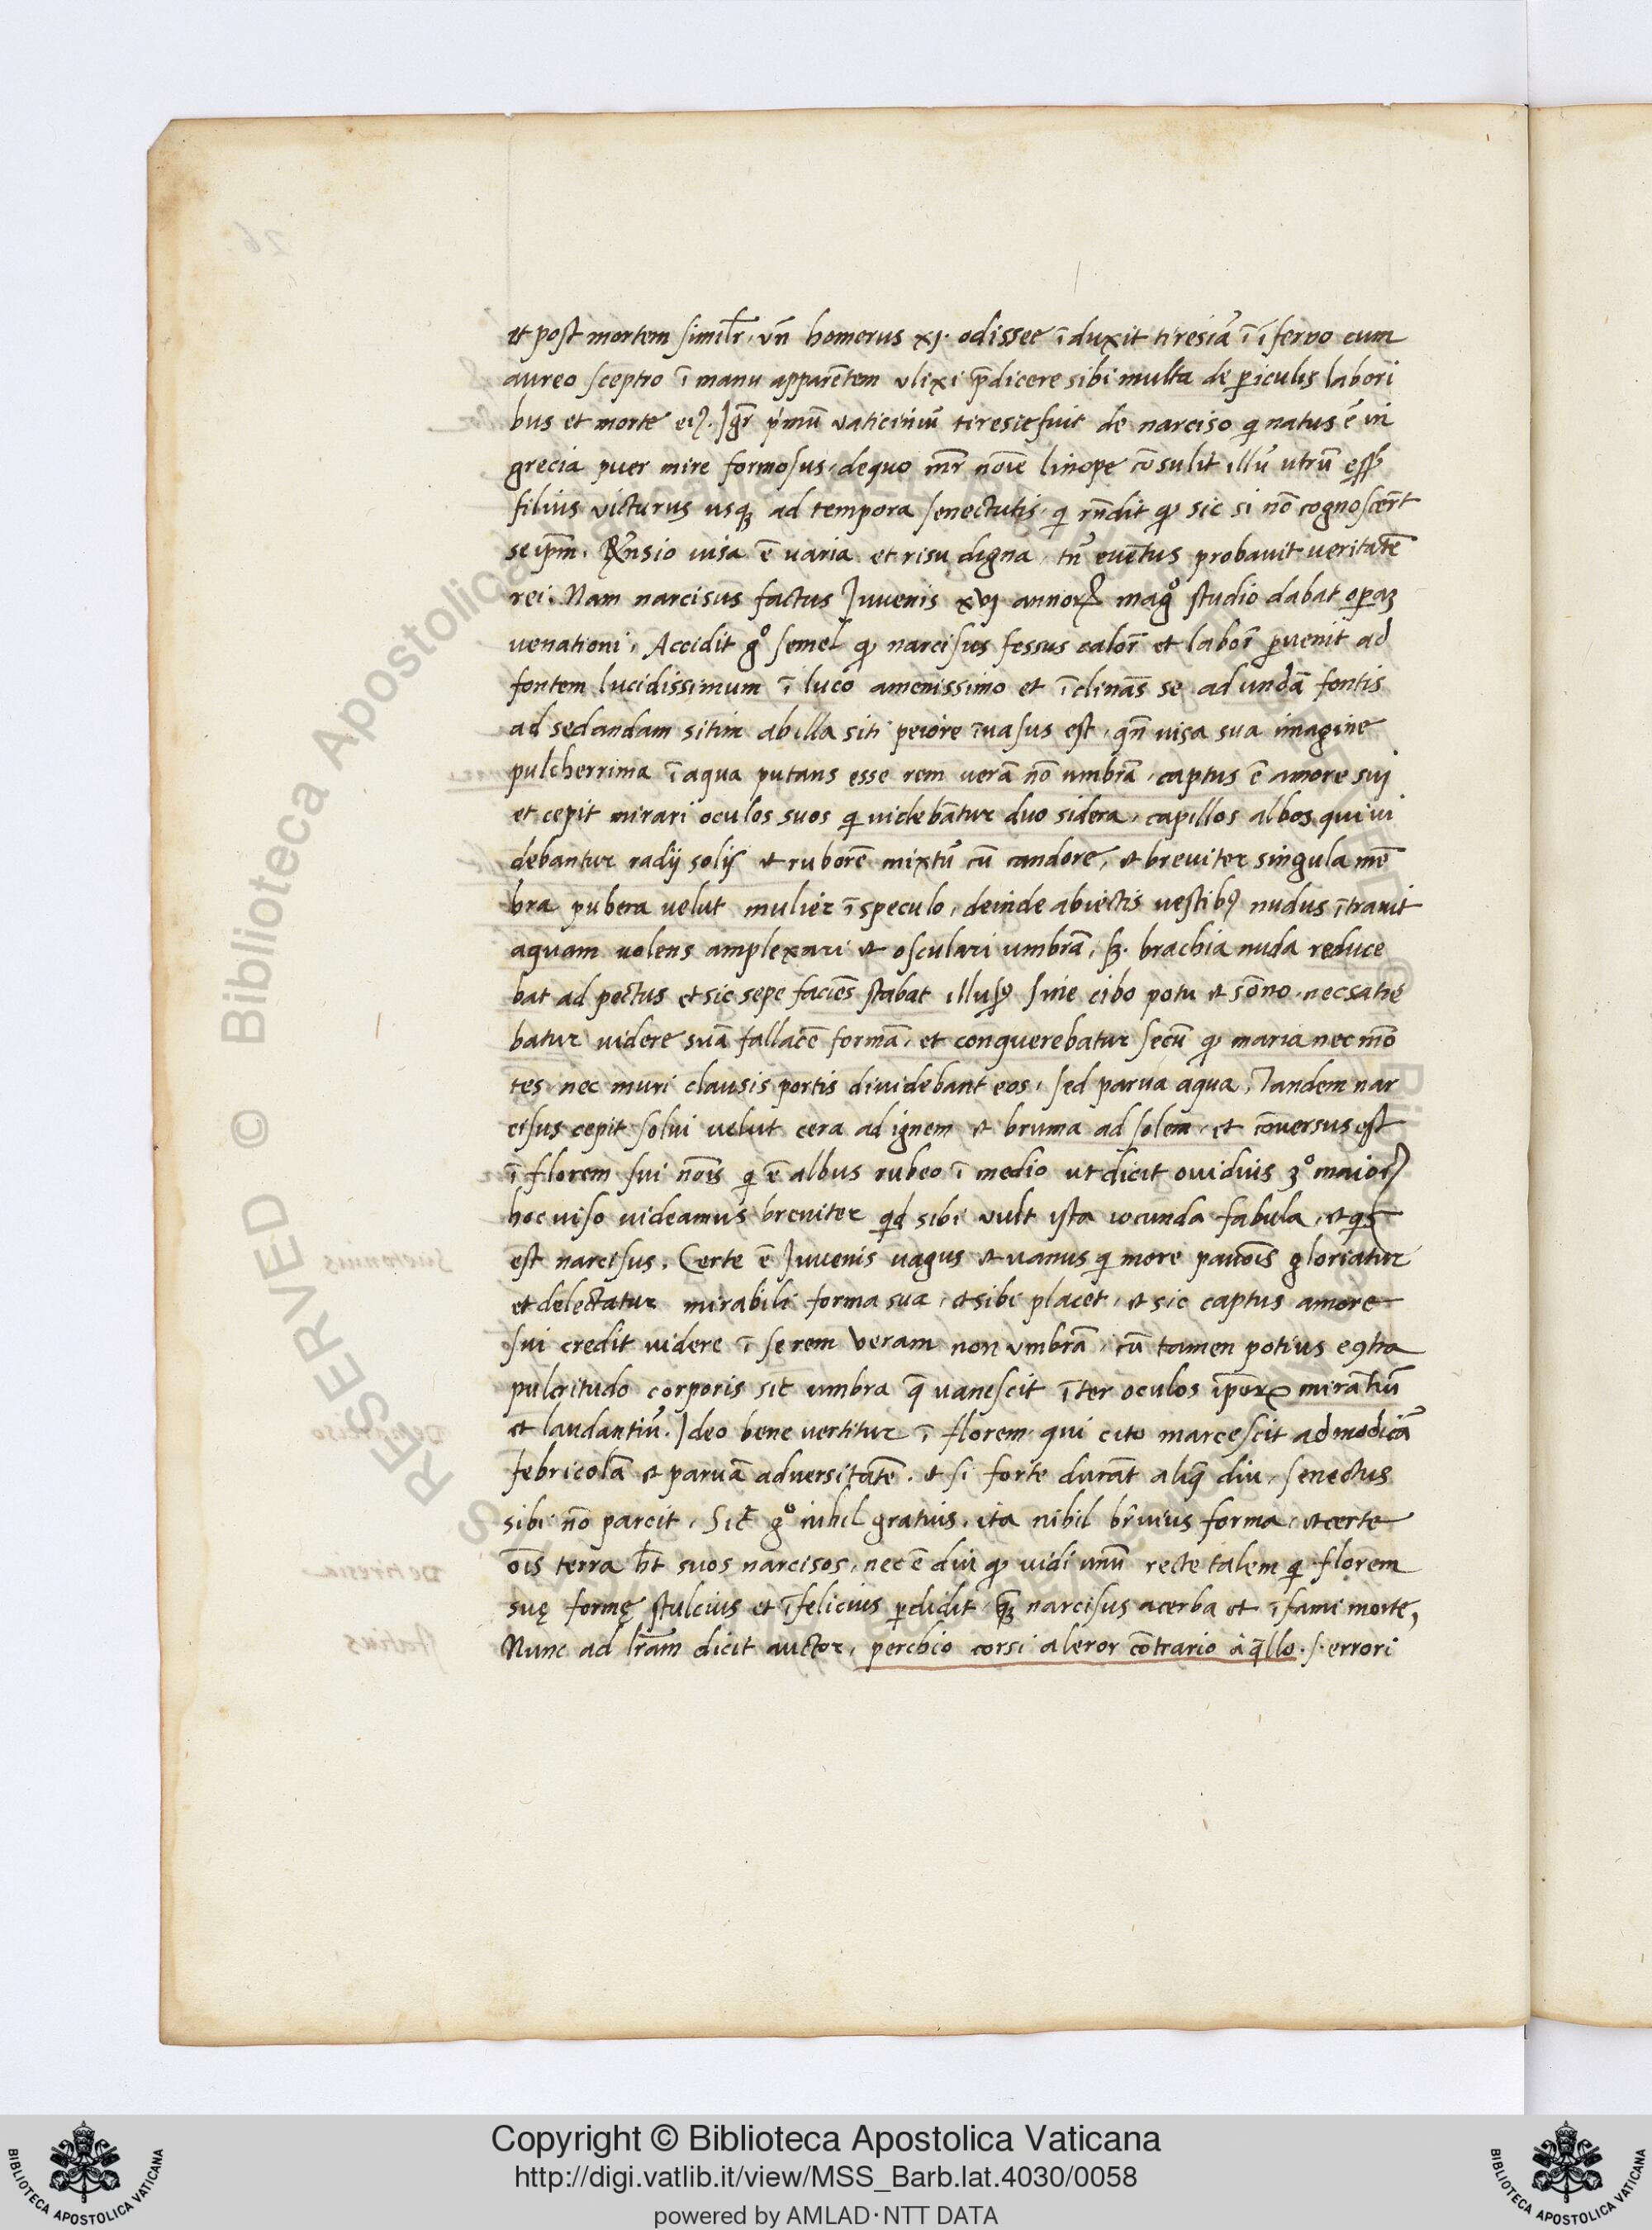 et post mortem simil̄r. vn̄ homerus xj. odissee īduxit tiresiā ī īferno cum
aureo sceptro ī manu apparētem vlixi p̄dicere sibi multa de ꝑiculis labori
bus et morte eiꝰ. Igr̄ pͥmū vaticiniū tiresie fuit de narciso qͥ natus ē in
grecia puer mire formosus, de quo mr̄ noīe liriope cōsulit illū utrū
filius victurus usqꝫ ad tempora senectutis. qͥ rn̄dit ꝙ sic si nō cognoscer̄t
seip̄m. Rn̄sio uisa ē uaria et risu digna, tn̄ euētus probauit veritatē
rei. Nam narcisus factus Juvenis xvj annoꝝ magͦ studio dabat oꝑaꝫ
venationi. Accidit gͦ semel ꝙ narcisus fessus calor̄ et labor̄ ꝑuenit ad
fontem lucidissimum ī luco amenissimo et īclinās se ad undā fontis
ad sedandam sitim ab illa siti peiore īuasus est. qn̄ uisa sua imagine
pulcherrima ī aqua putans esse rem uerā nō umbrā, captus ē amore suj
et cepit mirari oculos suos qͥ uidebātur duo sidera, capillos albos qui ui
debantur radij solis et ruborē mixtū cū candore, et breuiter singula mē
bra pubera velut mulier ī speculo, deinde abiectis uestibꝰ nudus ītrauit
aquam uolens amplexari et osculari umbrā, sꝫ. brachia nuda reduce
bat ad pectus et sic sepe faciēs stabat sine cibo potu et sōno, nec satie
batur uidere suā fallacē formā, et conquerebatur secū ꝙ maria nec mō
tes nec muri clausis portis diuidebant eos, sed parua aqua. Tandem nar
cisus cepit solui velut cera ad ignem et bruma ad solem, et cōuersus est
ī florem sui noīs qͥ ē albus rubeo ī medio ut dicit ouidius 3ͦ maioꝝ
hoc uiso uideamus breuiter qͥd sibi vult ysta iocunda fabula, et qͥs
est narcisus. Certe ē Juuenis uagus et uanus qͥ more pauōis gloriatur
et delectatur mirabili forma sua, et sibi placet, et sic captus amore
sui credit uidere ī se rem veram non vmbrā, cū tamen potius eꝯtra
pulcritudo corporis sit umbra q̄ uanescit īter oculos ip̄orꝝ mirātiū
et laudantiū. Ideo bene vertitur ī florem qui cito marcescit ad modicā
febricolā et paruā aduersitatē. et si forte durāt aliq̄ diu, senectus
sibi nō parcit. Sic̄ gͦ nihil gratius, ita nihil br̄uius forma, et certe
oīs terra h̄t suos narcisos, nec ē diu ꝙ uidi unū recte talem qͥ florem
suę formę stulcius et īfelicius ꝑdidit qͣꝫ narcisus acerba et īfami morte,
Nunc ad lr̄am dicit auctor, perchio corsi a leror cōtrario à q̄llo .s. errori